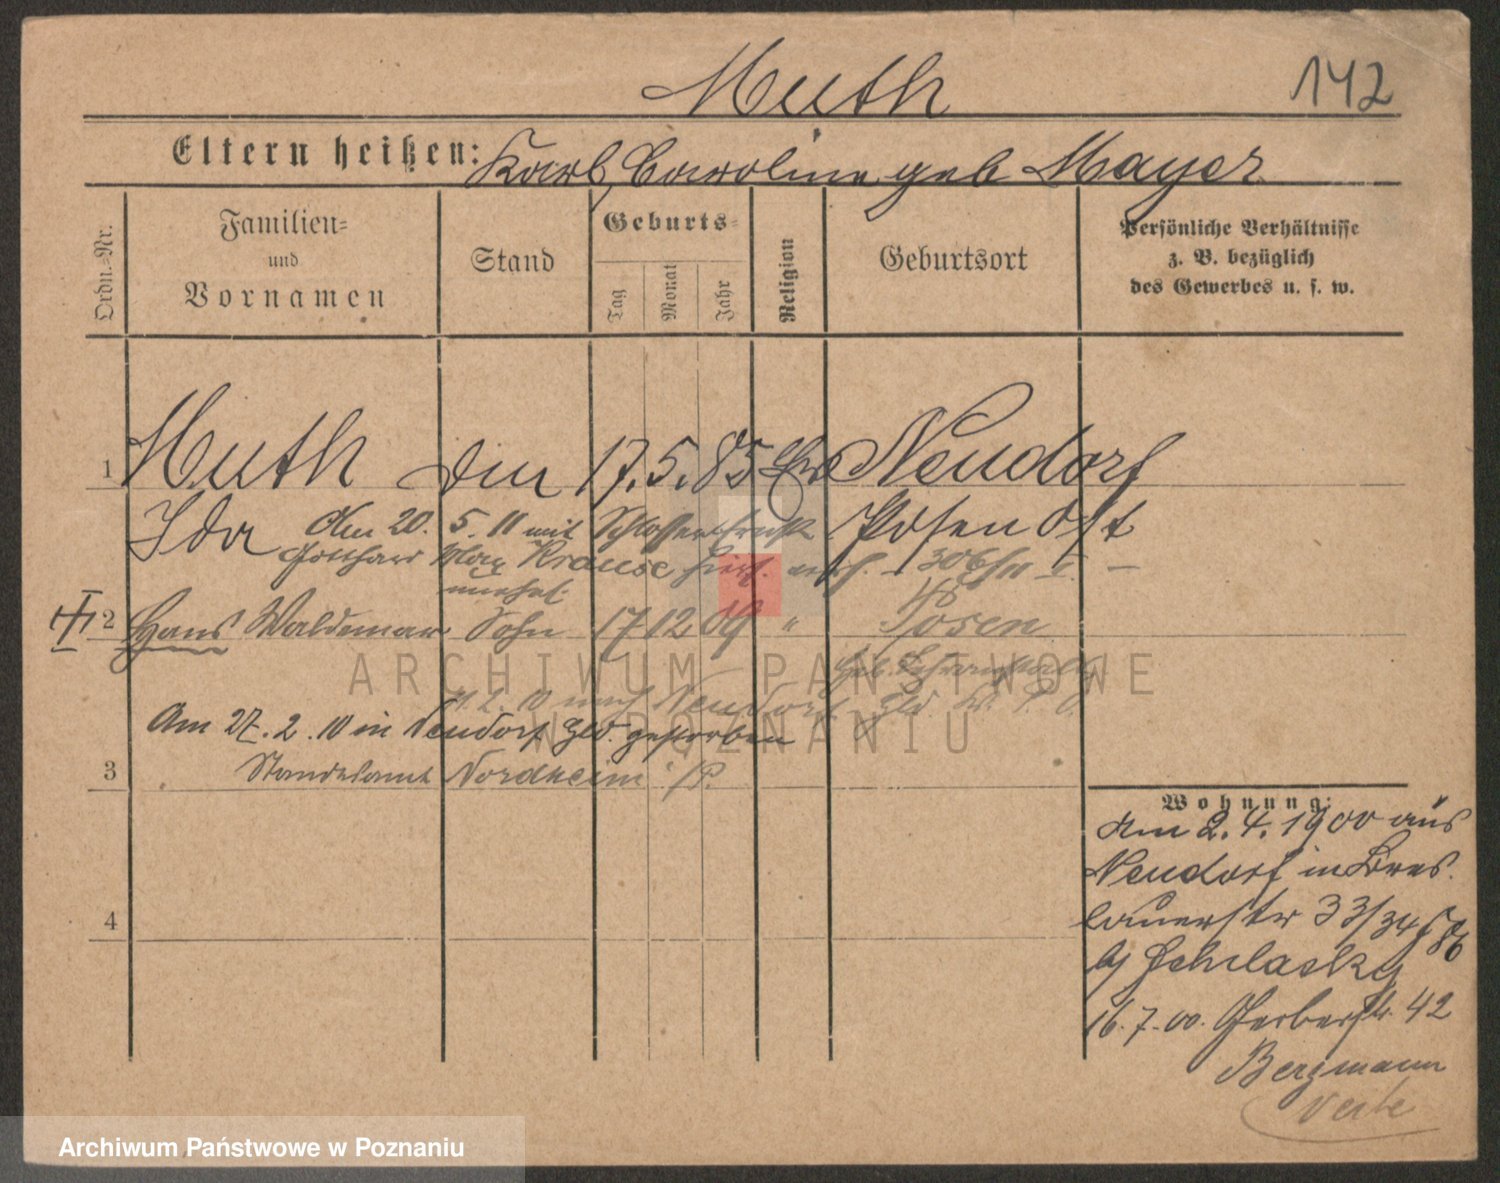 Muth
142
Eltern heißen: Karl, Caroline geb Mayer
Ordn.=Nr.
Familien=
und
Vornamen
Stand
Geburts=
Tag
Monat
Jahr
Religion
Geburtsort
Persönliche Verhältnisse
z. B. bezüglich
des Gewerbes u. s. w.
1 Muth 17. 5. 85 Ev Neudorf
Ida Am 20. 5. 11 mit Schlosser Ernst Posen Ost
Gotthard Max Krause verh. 306/11
unehel.
2 Hans Waldemar Sohn 17 12 09 " Posen
2. 10 nach Neudorf
Am 27. 2. 10 in Neudorf gestorben
3 Standesamt Nordheim
4
Wohnung:
Am 2. 4. 1900 aus
Neudorf in Bres-
lauerstr 33/34
b/ Schilasky
16. 7. 00. Gerberstr. 42
Bergmann
ARCHIWUM PAŃSTWOWE
W POZNANIU
Archiwum Państwowe w Poznaniu